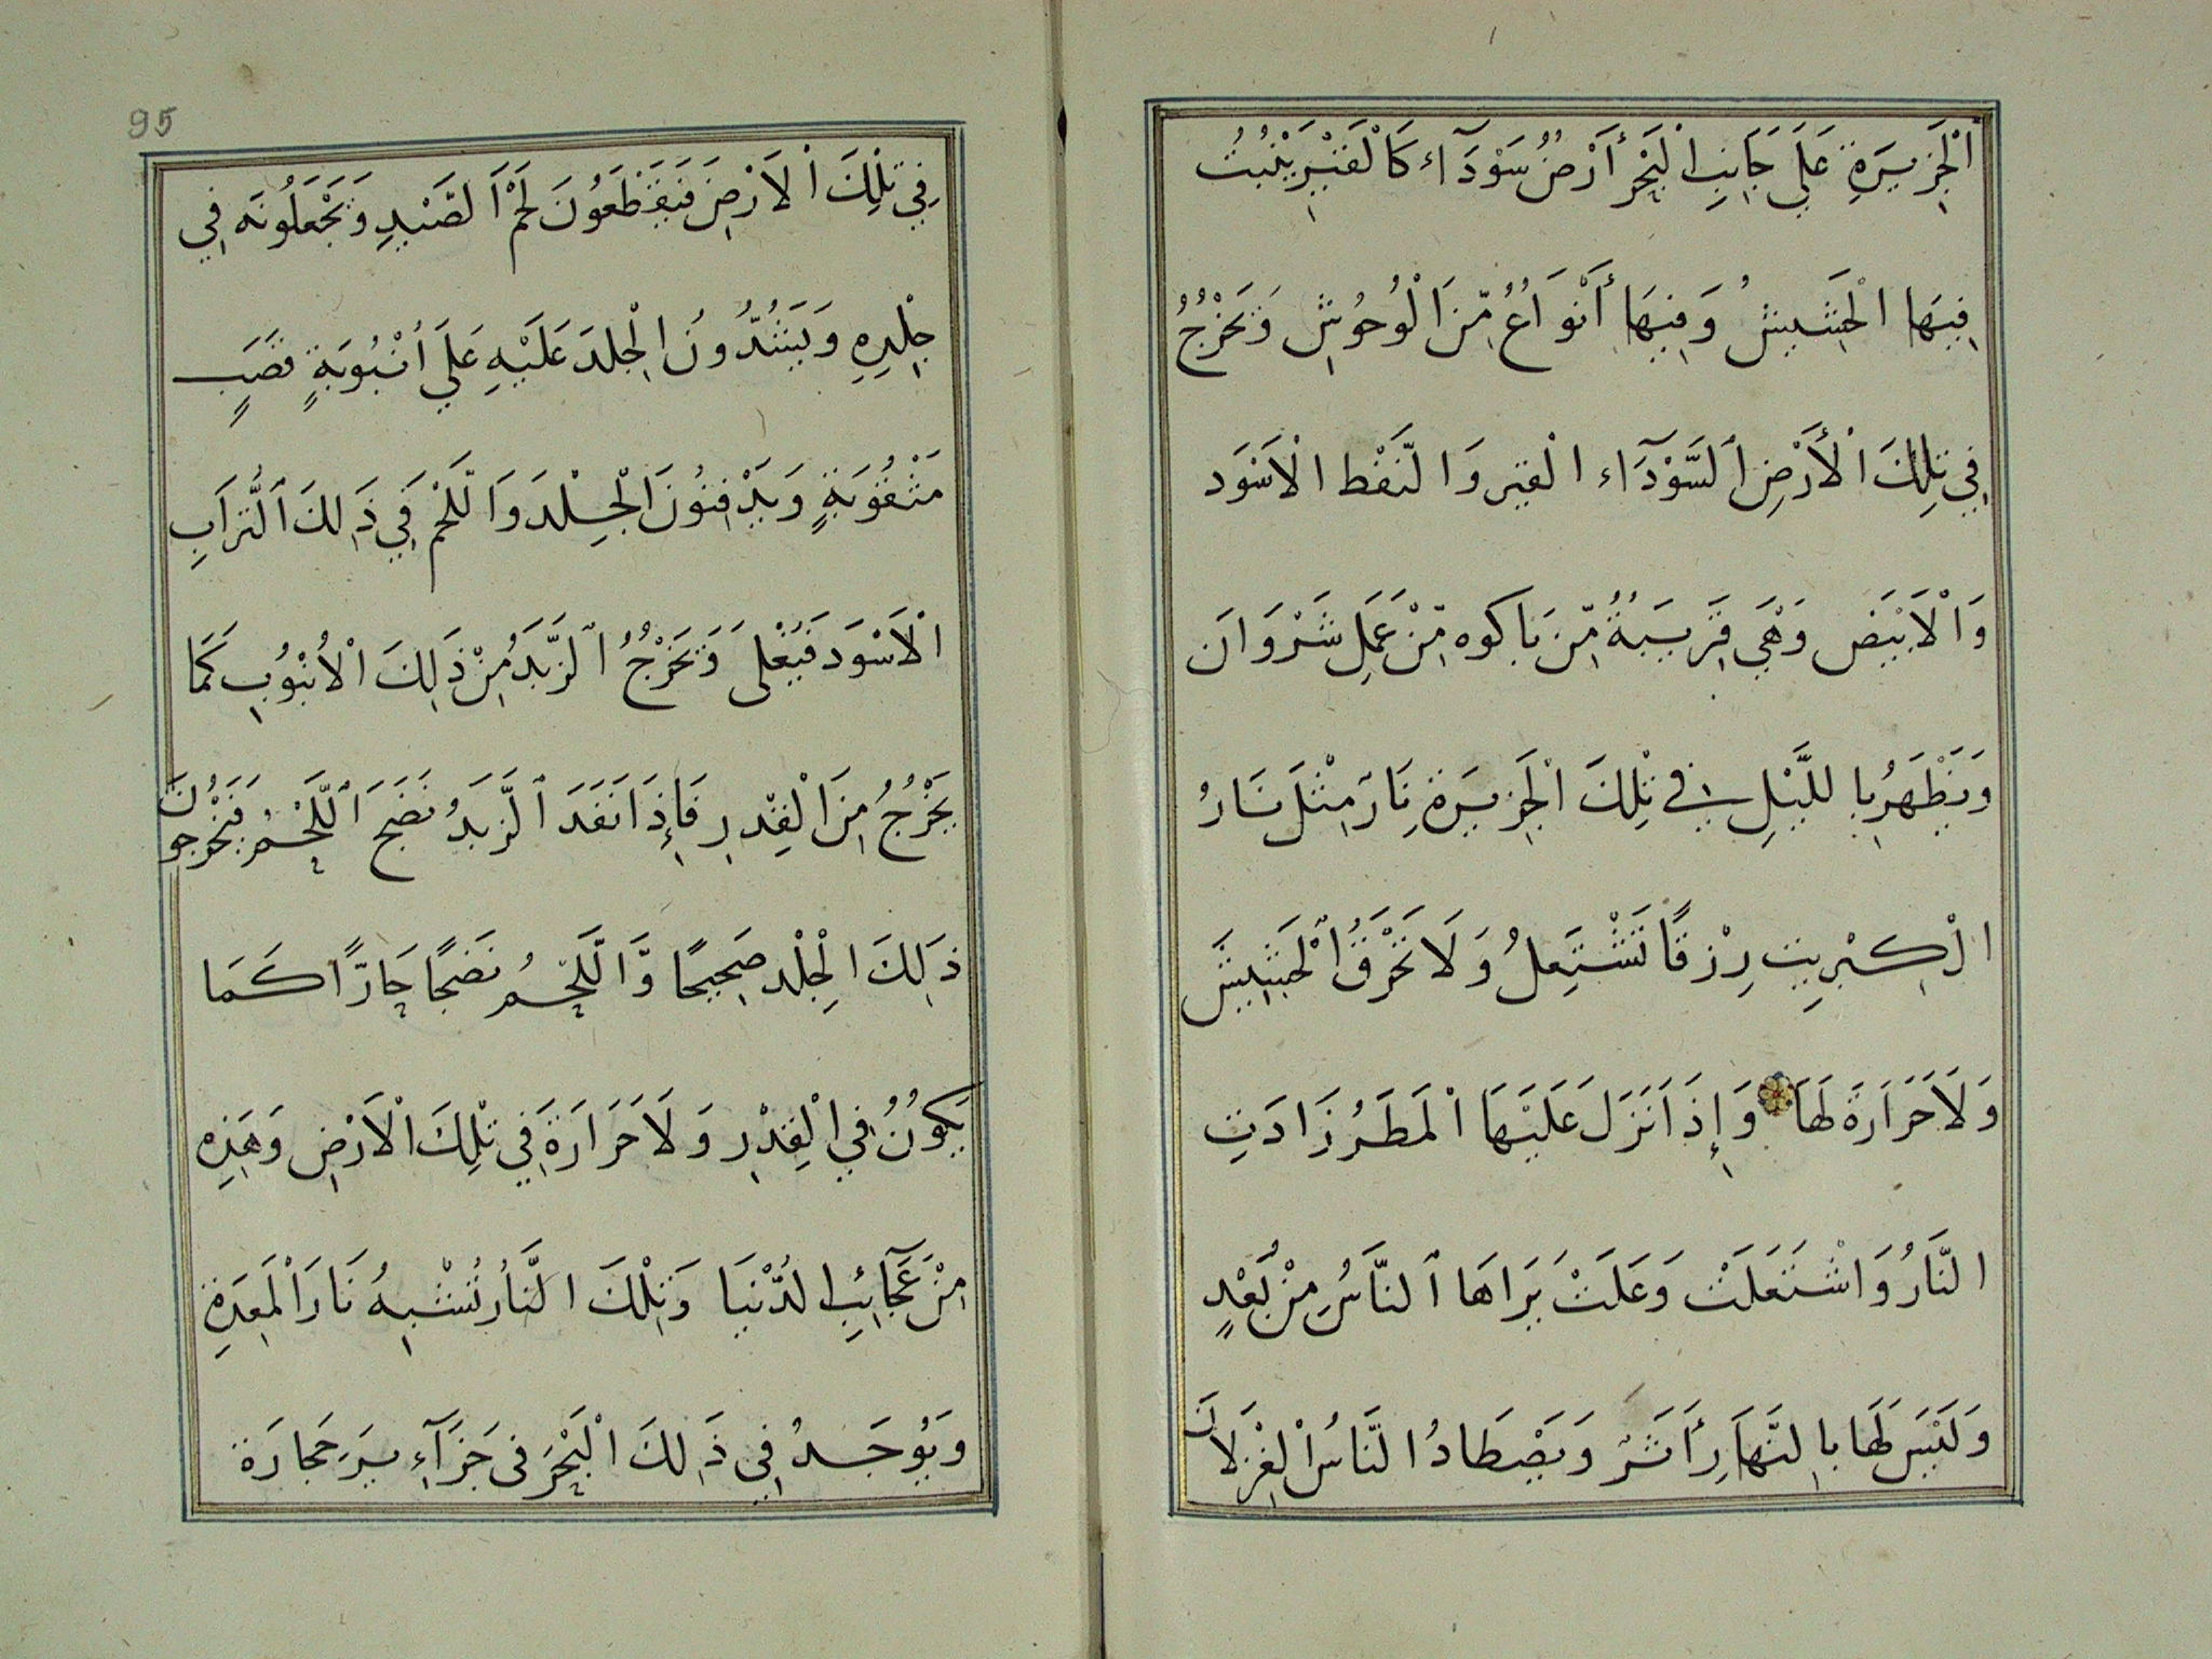 الْجَزِيرَةِ عَلَي جَانِبِ الْبَحْرِ أَرْضٌ سَوْدَآء كَالْقَيْرِ يَنْبُتُ
فِيهَا الْحَشِيشُ وَفِيهَا أَنْوَاعٌ مِّنَ الْوُحُوشِ وَيَخْرُجُ
فِي تِلْكَ الْأَرْضِ السَّوْدَآء الْقِير وَالنَّفْط الْاَسْوَد
وَالْاَبْيَض وَهْيَ قَرِيبَةٌ مِّن بَاكوه مِّنْ عَمَلِ شَرْوَان
وَيَظْهَرُ بِاللَّيْلِ فِي تِلْكَ الْجَزِيرَة نَارٌ مِثْلَ نَارُ
الْكِبْرِيت رِزْقًا تَشْتَعِلُ وَلَا تَحْرِقُ الْحَشِيشَ
وَلَا حَرَارَةَ لَهَا وَإِذَا نَزَلَ عَلَيْهَا الْمَطَرُ زَادَتِ
النَّارُ وَاشْتَعَلَتْ وَعَلَتْ يَرَاهَا النَّاسُ مِنْ بُعْدٍ
وَلَيْسَ لَهَا بِالنَّهَارِ أَثَرٌ وَيَصْطَادُ النَّاسُ الْغِزْلَانَ
95
فِي تِلْكَ الْاَرْضِ فَيَقْطَعُونَ لَحْمَ الصَّيْدِ وَيَجْعَلُونَه فِي
جِلْدِهِ وَيَشُدُّونَ الْجِلدَ عَلَيْهِ عَلَي أُنْبُوبَةٍ قَصَبٍ
مَثْقُوبَةٍ وَيَدْفِنُونَ الْجِلْدَ وَاللَّحْمَ فِي ذَلِكَ التُّرَابِ
الْاَسْوَدَ فَيَغْلَى وَيَخْرُجُ الزَّبَدُ مِنْ ذَلِكَ الْاُنْبُوبِ كَمَا
يَخْرُجُ مِنَ الْقِدْرِ فَإِذَا نَفَدَ الزَّبَدُ نَضَجَ اللَّحْمُ فَيَخْرُجُونَ
ذَلِكَ الْجِلْد صَحِيحًا وَّاللَّحْمُ نَضِجًا حَارًّا كَمَا
يَكُونُ فِي الْقِدْرِ وَلَا حَرَارَةَ فِي تِلْكَ الْاَرْضِ وَهَذِهِ
مِنْ عَجَآئِبِ الدُّنْيَا وَتِلْكَ النَّارُ تُشْبِهُ نَارَ الْمَعِدَةِ
وَيُوجَدُ فِي ذَلِكَ الْبَحْرَ فى جَزَآءِيرَ حَجَارَة